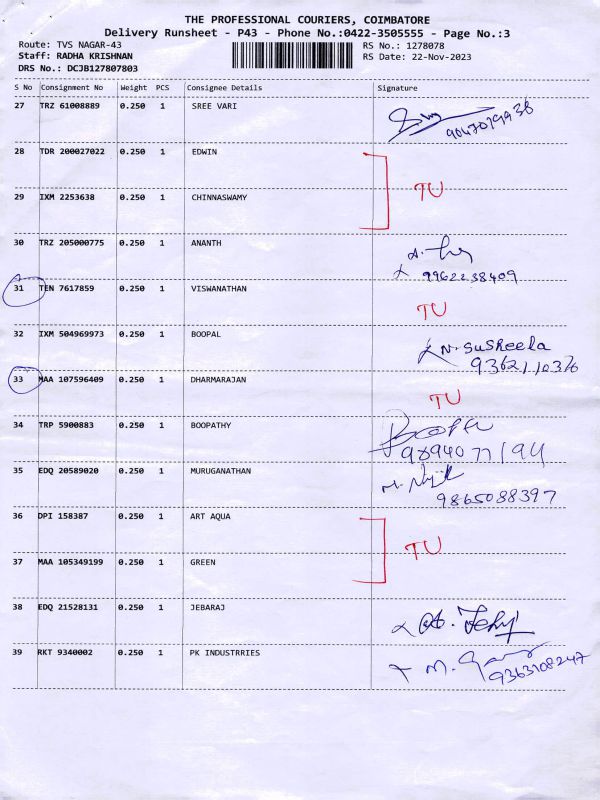 THE PROFESSIONAL COURIERS, COIMBATORE
Delivery Runsheet - P43 - Phone No.:0422-3505555 - Page No.:3
Route: TVS NAGAR-43 RS No.: 1278078
Staff: RADHA KRISHNAN RS Date: 22-Nov-2023
DRS No.: DCJB127807803
S No Consignment No Weight PCS Consignee Details Signature
27 TRZ 61008889 0.250 1 SREE VARI
9047079938
28 TDR 200027022 0.250 1 EDWIN
TU
29 IXM 2253638 0.250 1 CHINNASWAMY
30 TRZ 205000775 0.250 1 ANANTH
9962238409
31 TEN 7617859 0.250 1 VISWANATHAN
TU
32 IXM 504969973 0.250 1 BOOPAL
N. Susheela
9362110376
33 MAA 107596409 0.250 1 DHARMARAJAN
TU
34 TRP 5900883 0.250 1 BOOPATHY
9894077194
35 EDQ 20589020 0.250 1 MURUGANATHAN
9865088397
36 DPI 158387 0.250 1 ART AQUA
TU
37 MAA 105349199 0.250 1 GREEN
38 EDQ 21528131 0.250 1 JEBARAJ
39 RKT 9340002 0.250 1 PK INDUSTRRIES
9363108247